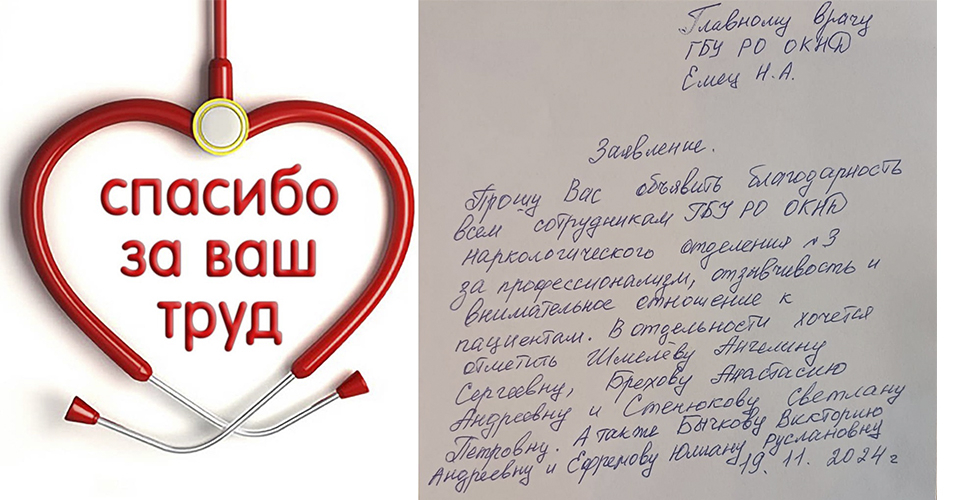 спасибо
за ваш
труд
Главному врачу
ГБУ РО ОКНД
Емец Н.А.
Заявление.
Прошу Вас объявить благодарность
всем сотрудникам ГБУ РО ОКНД
наркологического отделения №3
за профессионализм, отзывчивость и
внимательное отношение к
пациентам. В отдельности хочется
отметить Шмелеву Ангелину
Сергеевну, Брехову Анастасию
Андреевну и Стенюкову Светлану
Петровну. А также Бычкову Викторию
Андреевну и Ефремову Юлиану Руслановну
19.11.2024г